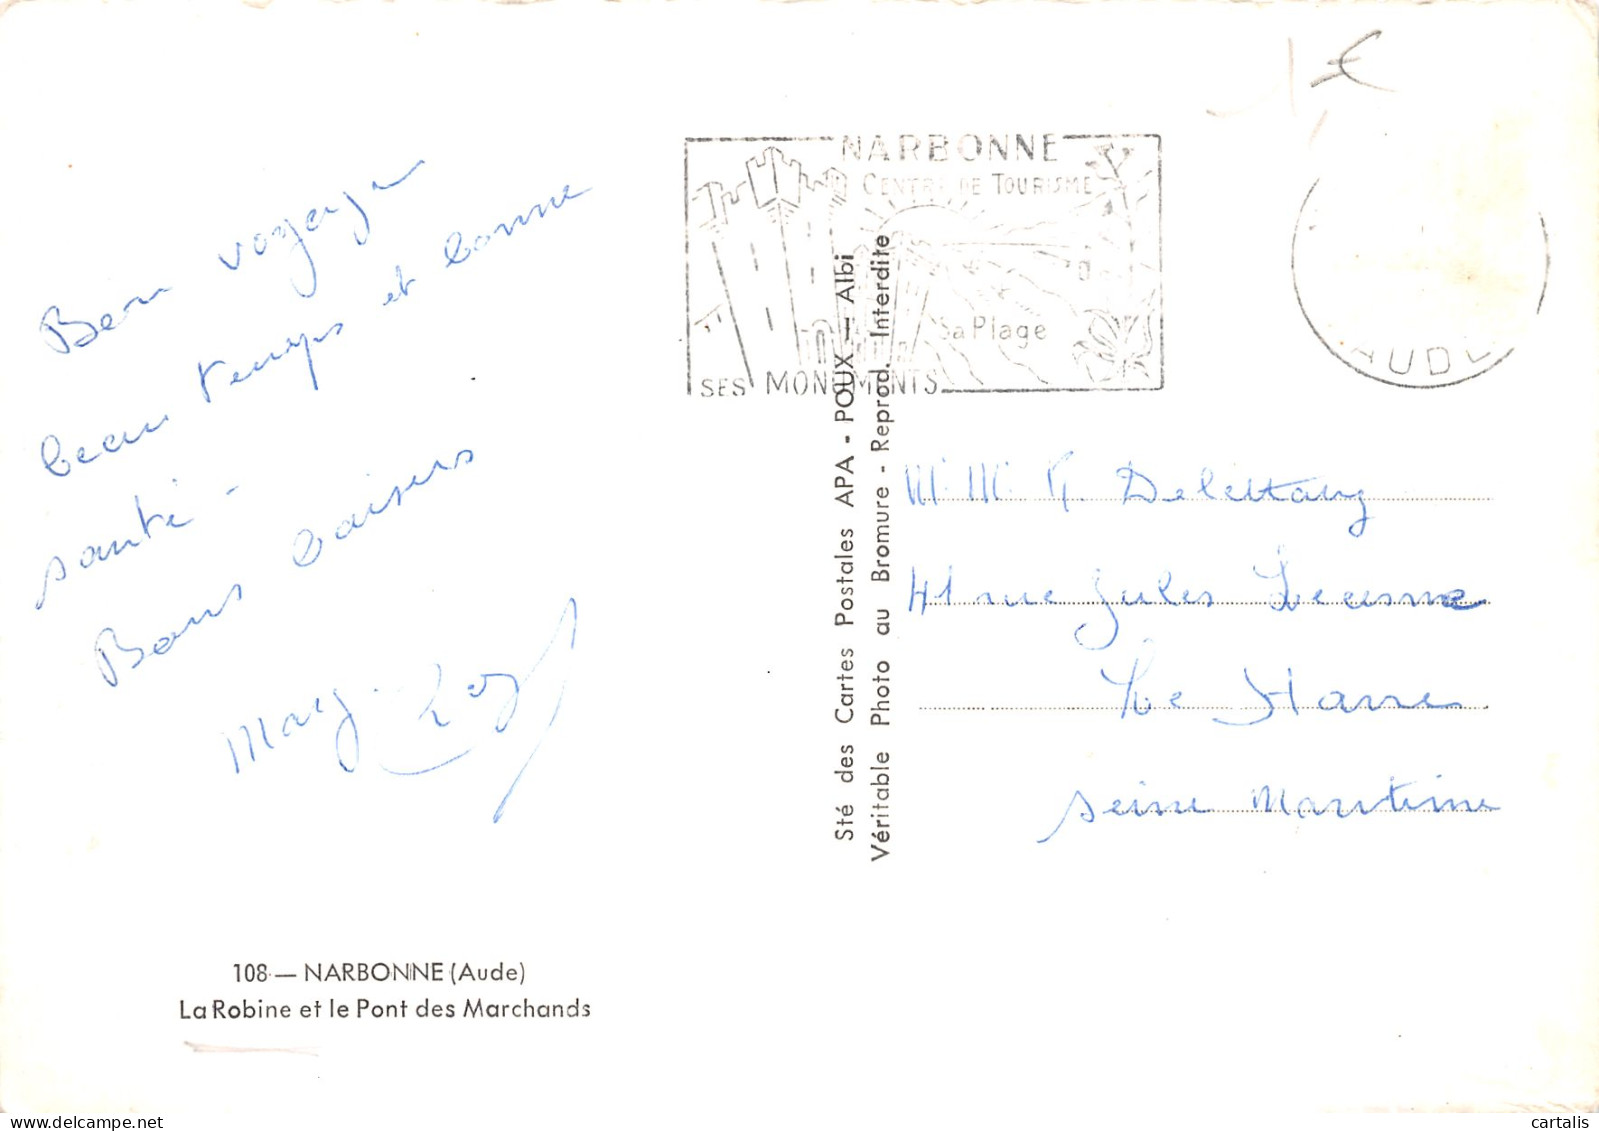 Bon voyage
beau temps et bonne
santé -
Bons baisers
NARBONNE
CENTRE DE TOURISME
Sa Plage
SES MONUMENTS
AUDE
Sté des Cartes Postales APA - POUX - Albi
Véritable Photo au Bromure - Reprod. Interdite
41 rue Jules Lecesne
Le Havre
Seine Maritime
108 - NARBONNE (Aude)
La Robine et le Pont des Marchands
cartalis